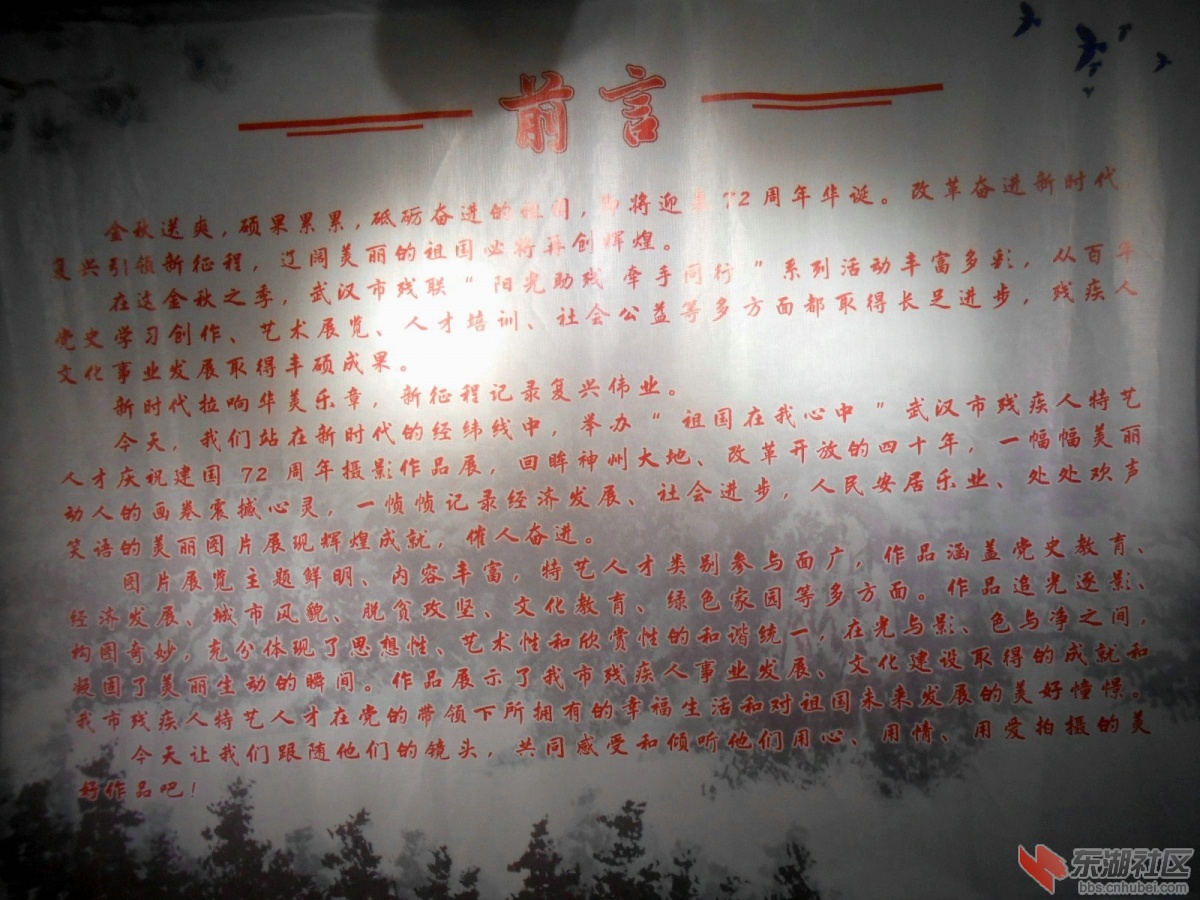 前言
金秋送爽，硕果累累，砥砺奋进的祖国，即将迎来72周年华诞。改革奋进新时代
复兴引领新征程，辽阔美丽的祖国必将再创辉煌。
在这金秋之季，武汉市残联“阳光助残 牵手同行”系列活动丰富多彩，从百年
党史学习创作、艺术展览、人才培训、社会公益等多方面都取得长足进步，残疾人
文化事业发展取得丰硕成果。
新时代拉响华美乐章，新征程记录复兴伟业。
今天，我们站在新时代的经纬线中，举办“祖国在我心中”武汉市残疾人特艺
人才庆祝建国 72 周年摄影作品展，回眸神州大地、改革开放的四十年，一幅幅美丽
动人的画卷震撼心灵，一帧帧记录经济发展、社会进步，人民安居乐业、处处欢声
笑语的美丽图片展现辉煌成就，催人奋进。
图片展览主题鲜明、内容丰富，特艺人才类别参与面广，作品涵盖党史教育、
经济发展、城市风貌、脱贫攻坚、文化教育、绿色家园等多方面。作品追光逐影、
构图奇妙，充分体现了思想性、艺术性和欣赏性的和谐统一，在光与影、色与净之间，
凝固了美丽生动的瞬间。作品展示了我市残疾人事业发展、文化建设取得的成就和
我市残疾人特艺人才在党的带领下所拥有的幸福生活和对祖国未来发展的美好憧憬。
今天让我们跟随他们的镜头，共同感受和倾听他们用心、用情、用爱拍摄的美
好作品吧！
东湖社区
bbs.cnhubei.com